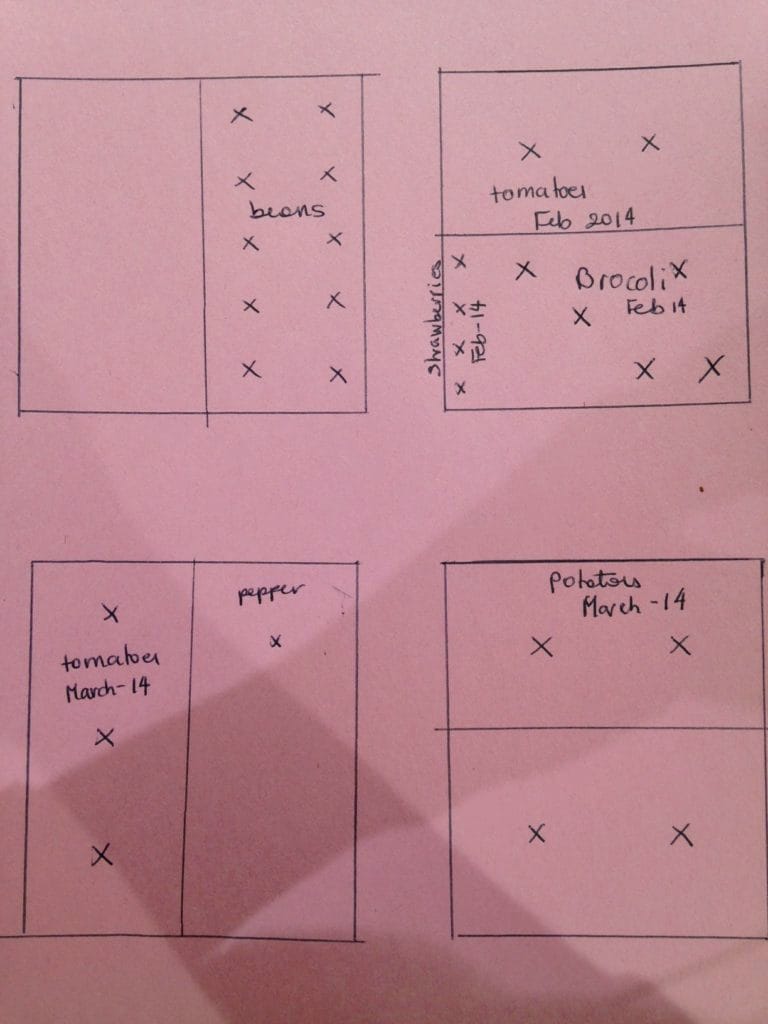 beans
tomatoes
Feb 2014
Strawberries
Feb-14
Brocoli
Feb 14
tomatoes
March-14
pepper
Potatoes
March-14